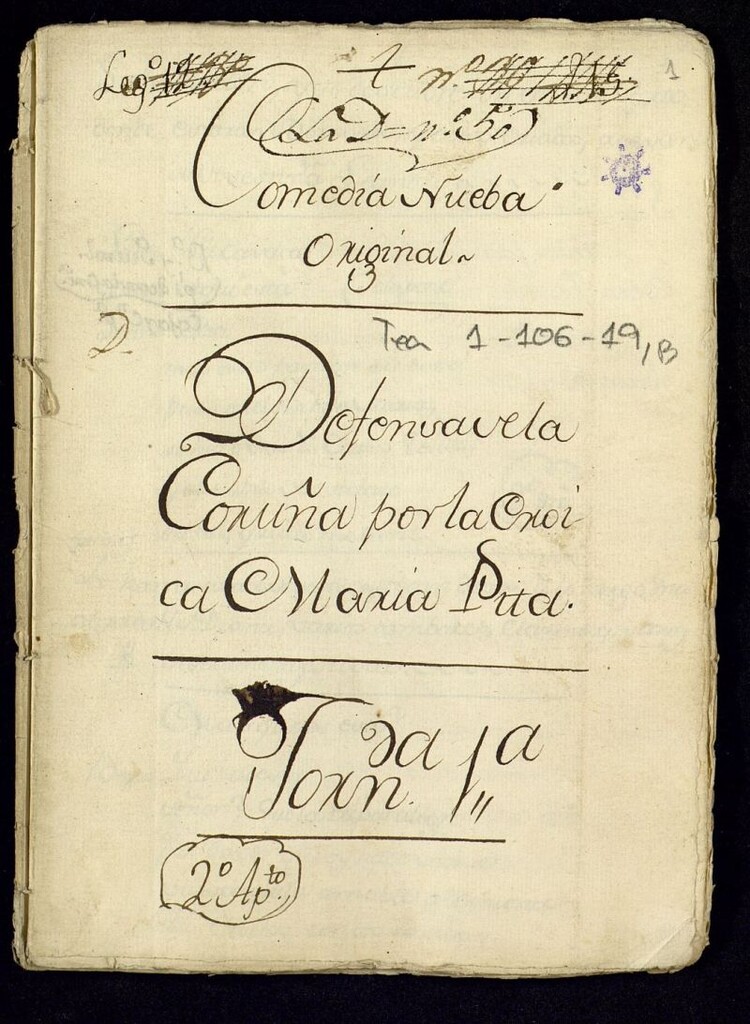 Leg.º
+ nº 1
La D = nº 50
Comedia Nueba
Original
D
Tea 1-106-19, B
Defensa de la
Coruña por la Eroi
ca Maria Pita.
Jorn.da 1ª
2º Ap.to